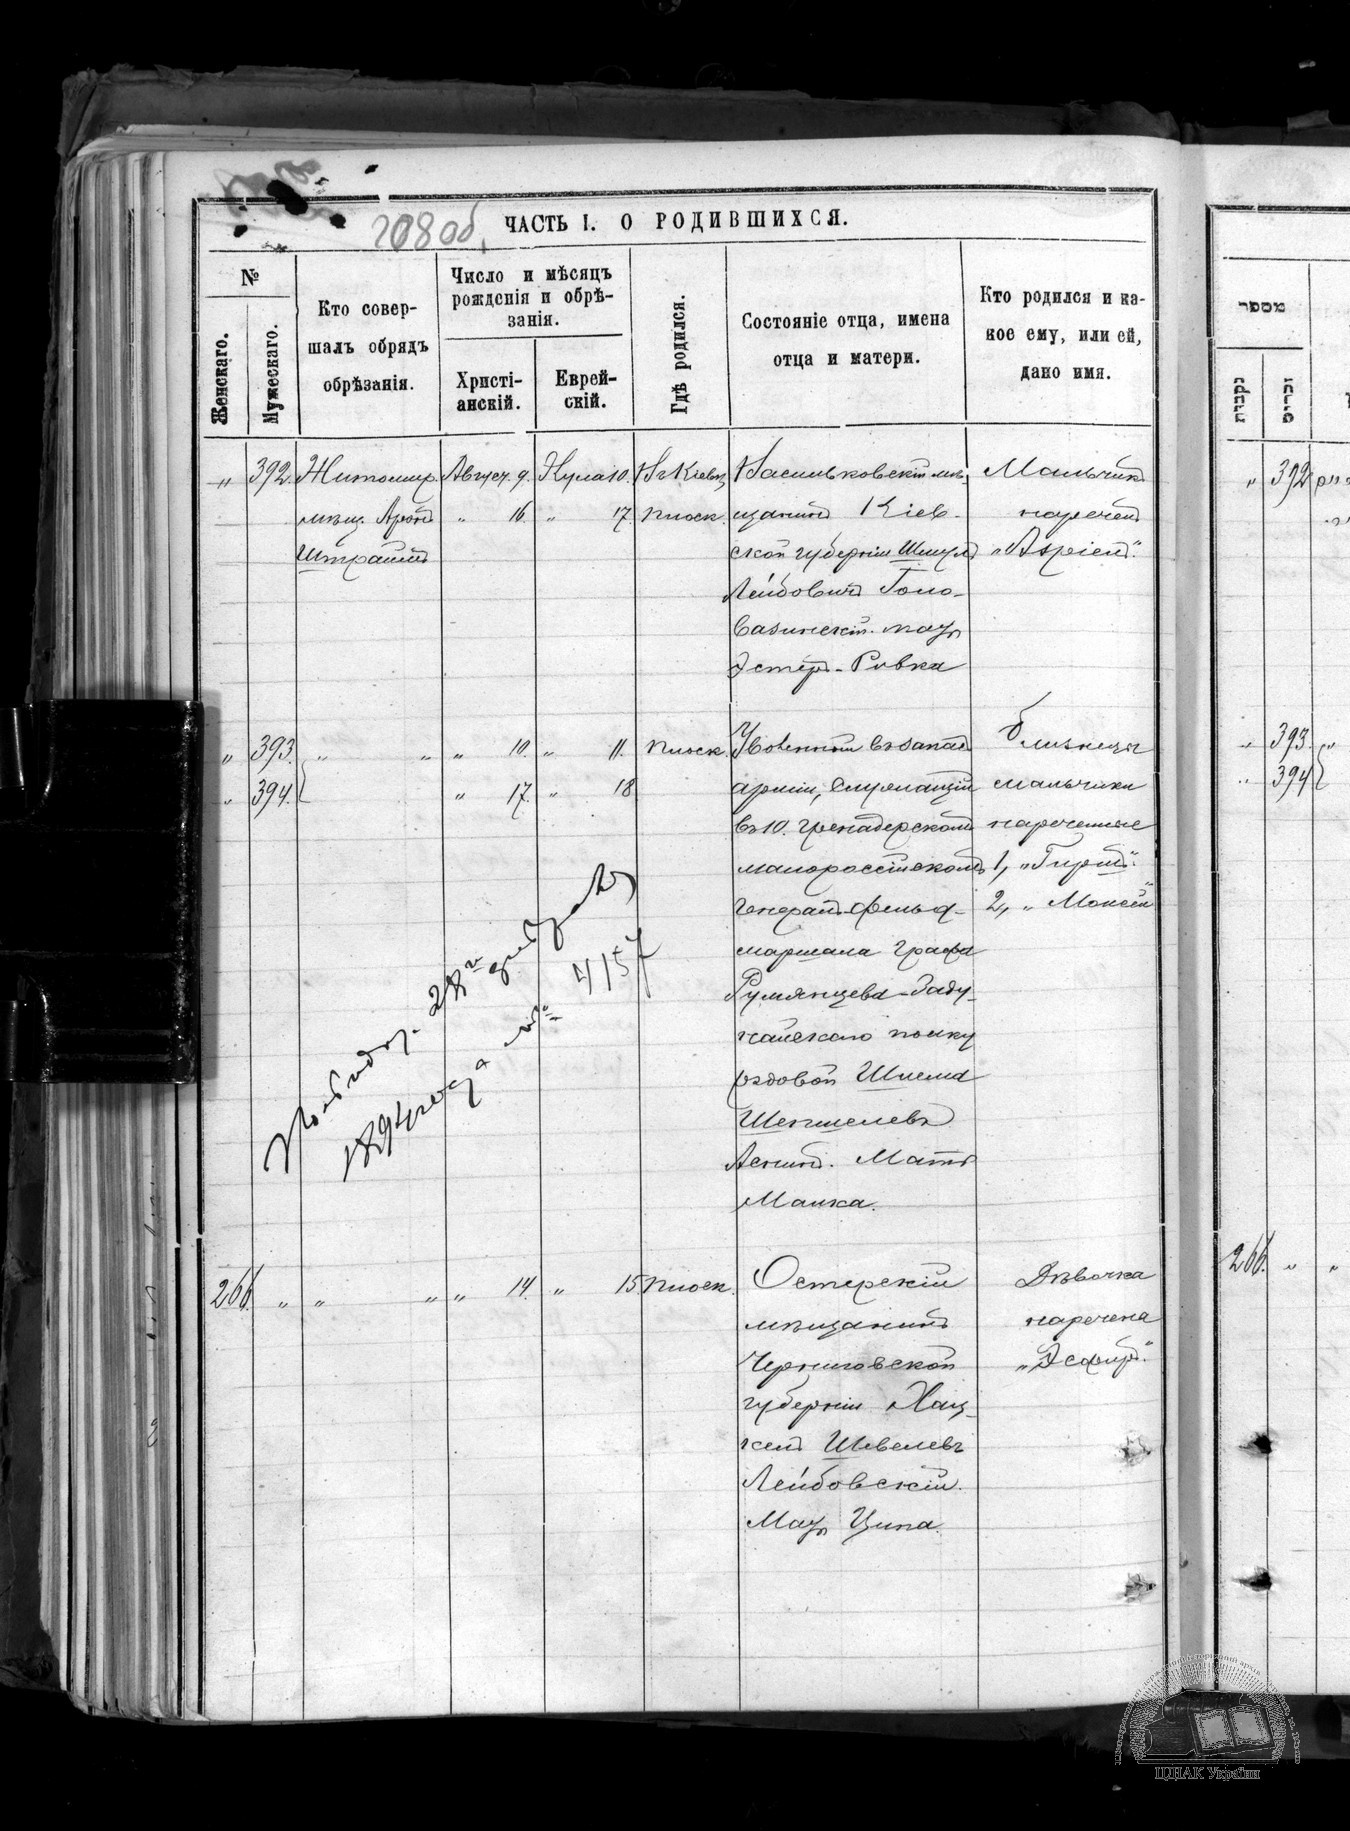 208 об.
ЧАСТЬ I. О РОДИВШИХСЯ.
№
Женскаго.
Мужескаго.
Кто совер-
шалъ обрядъ
обрѣзанія.
Число и мѣсяцъ
рожденія и обрѣ-
занія.
Христі-
анскій.
Еврей-
скій.
Гдѣ родился.
Состояніе отца, имена
отца и матери.
Кто родился и ка-
кое ему, или ей,
дано имя.
" 392. Житомир.
мѣщ. Аронъ
Штраймъ
Август. 9.
" 16.
10.
" 17.
Плоск.
Васильковскій мѣ-
щанинъ Кіев-
ской губерніи Шмулъ
Лейбовичъ Голо-
ванивскій. мать
Эстеръ-Ривка
Мальчикъ
нареченъ
„Азріелъ".
" 393. " " " 10. " 11. Плоск.
" 394. " 17. " 18
Уволенный въ запас
арміи, служащій
въ 10. гренадерскомъ
малороссійскомъ
генералъ-фельд-
маршала графа
Румянцева-Заду-
найскаго полку
рядовой Шлема
Шепшелевъ
Мать
Малка.
близнецы
мальчики
нареченные
1, „Гиршъ".
2, „Моисей"
28го
1894 года № 4157
266. " " " " 14. " 15 Плоск.
Остерскій
мѣщанинъ
Черниговской
губерніи Хац-
кель Шевелевъ
Лейбовскій.
Мать Ципа.
Дѣвочка
наречена
„Эсфирь".
מספר
נקבות
זכרים
" 392
" 393.
" 394
266. " "
ЦДІАК України